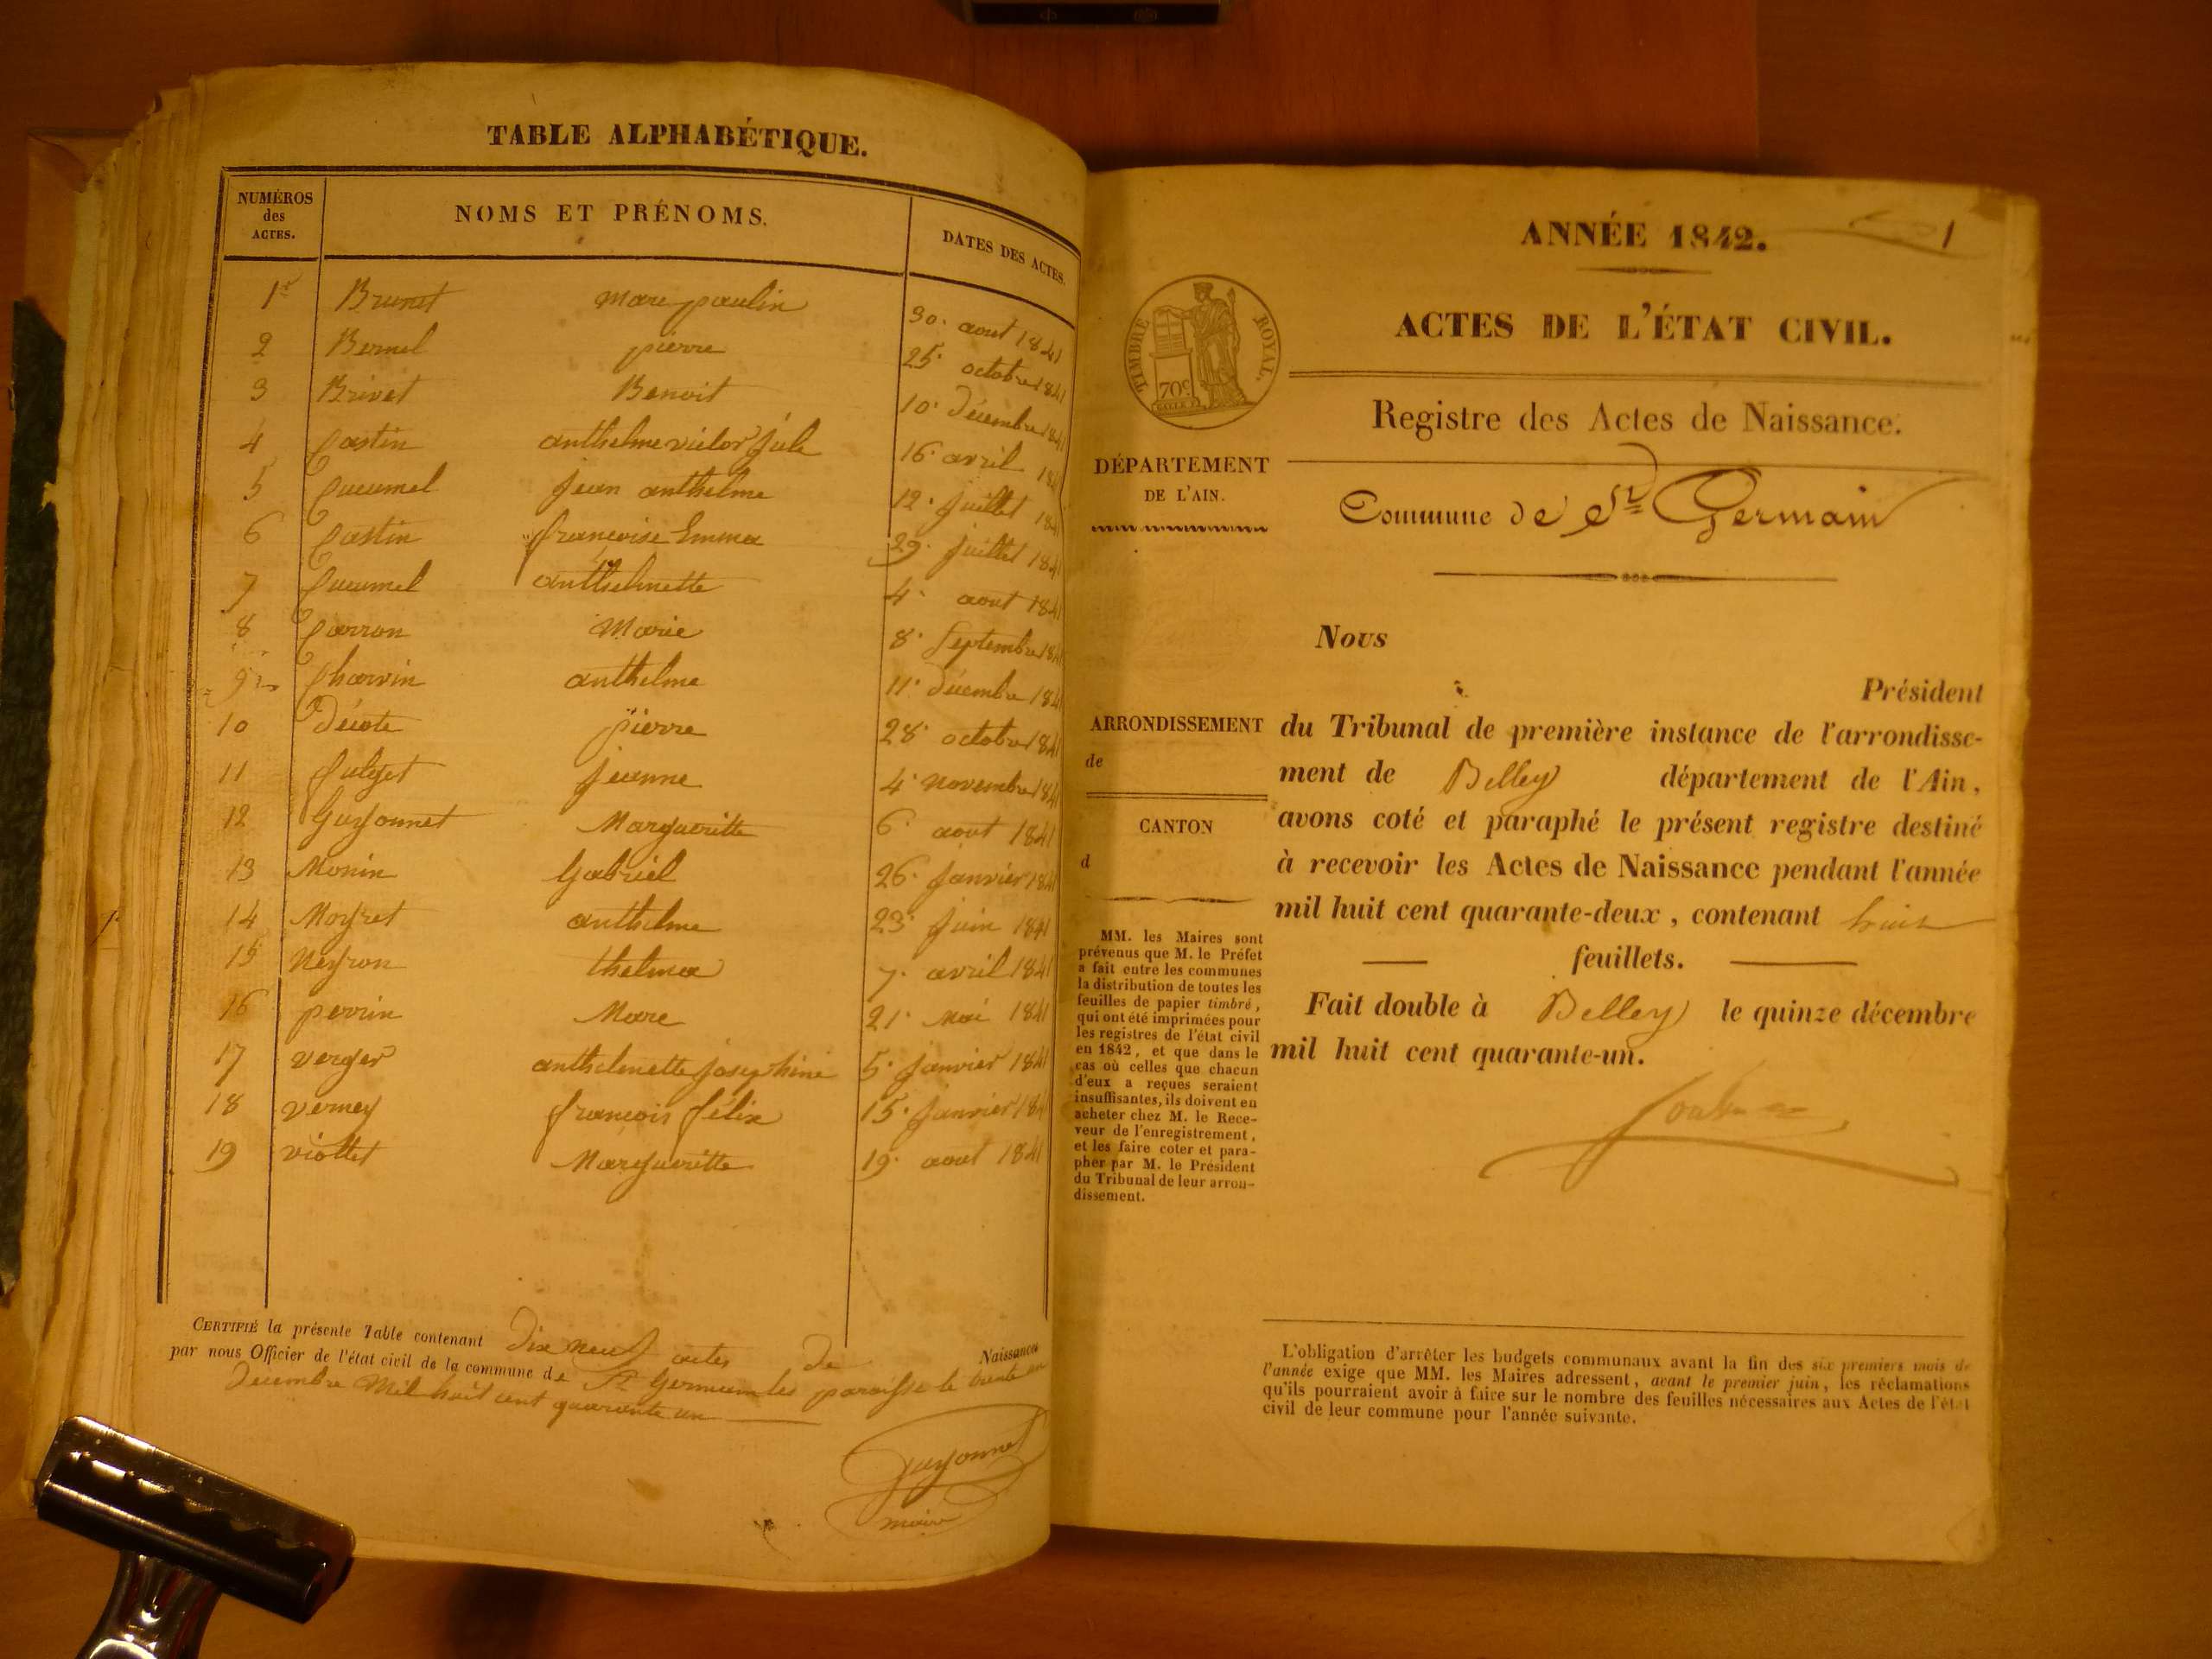 TABLE ALPHABÉTIQUE.
NUMÉROS des ACTES.
NOMS ET PRÉNOMS.
DATES DES ACTES.
1er Brunet marc paulin 30. aout 1841
2 Bernel pierre 25. octobre 1841
3 Brivet Benoit 10. décembre 1841
4 Castin anthelme victor jule 16. avril 184
5 Cucumel jean anthelme 12. juillet 184
6 Castin francoise Emma 29. juillet 184
7 Cucumel anthelmette 4. aout 184
8 Carron Marie 8. Septembre 184
9 Charvin anthelme 11. décembre 184
10 Décote pierre 28. octobre 1841
11 fulget jeanne 4. novembre 184
12 Guyonnet Margueritte 6. aout 1841
13 Monin Gabriel 26. janvier 184
14 Moyret anthelme 23. juin 1841
15 Neyron thelma 7. avril 1841
16 perrin Marc 21. Mai 1841
17 verger anthelmette josephine 5. janvier 1841
18 verney francois félix 15. janvier 184
19 viollet Margueritte 19. aout 1841
CERTIFIÉ la présente Table contenant Dix neuf actes de Naissances
par nous Officier de l'état civil de la commune de St Germain les paroisse le trente un
Decembre Mil huit cent quarante un
Guyonnet
maire
ANNÉE 1842.
1
ACTES DE L'ÉTAT CIVIL.
TIMBRE ROYAL.
70c
Registre des Actes de Naissance.
DÉPARTEMENT
DE L'AIN.
Commune de St Germain
Nous
Président
ARRONDISSEMENT
de
CANTON
d
du Tribunal de première instance de l'arrondisse-
ment de Belley département de l'Ain,
avons coté et paraphé le présent registre destiné
à recevoir les Actes de Naissance pendant l'année
mil huit cent quarante-deux, contenant huit
feuillets.
Fait double à Belley le quinze décembre
mil huit cent quarante-un.
MM. les Maires sont
prévenus que M. le Préfet
a fait entre les communes
la distribution de toutes les
feuilles de papier timbré,
qui ont été imprimées pour
les registres de l'état civil
en 1842, et que dans le
cas où celles que chacun
d'eux a reçues seraient
insuffisantes, ils doivent en
acheter chez M. le Rece-
veur de l'enregistrement,
et les faire coter et para-
pher par M. le Président
du Tribunal de leur arron-
dissement.
L'obligation d'arrêter les budgets communaux avant la fin des six premiers mois de
l'année exige que MM. les Maires adressent, avant le premier juin, les réclamations
qu'ils pourraient avoir à faire sur le nombre des feuilles nécessaires aux Actes de l'état
civil de leur commune pour l'année suivante.